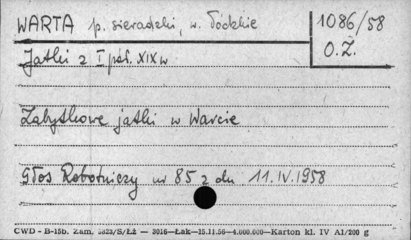 WARTA p. sieradzki, w. łódzkie
1086/58
O.Z.
Jatki z I poł. XIX w
Zabytkowe jatki w Warcie
Głos Robotniczy nr 85 z dn. 11.IV.1958
CWD - B-15b. Zam. 5823/S/Łż — 3016—Łak—15.11.56—4.000.000—Karton kl. IV A1/200 g